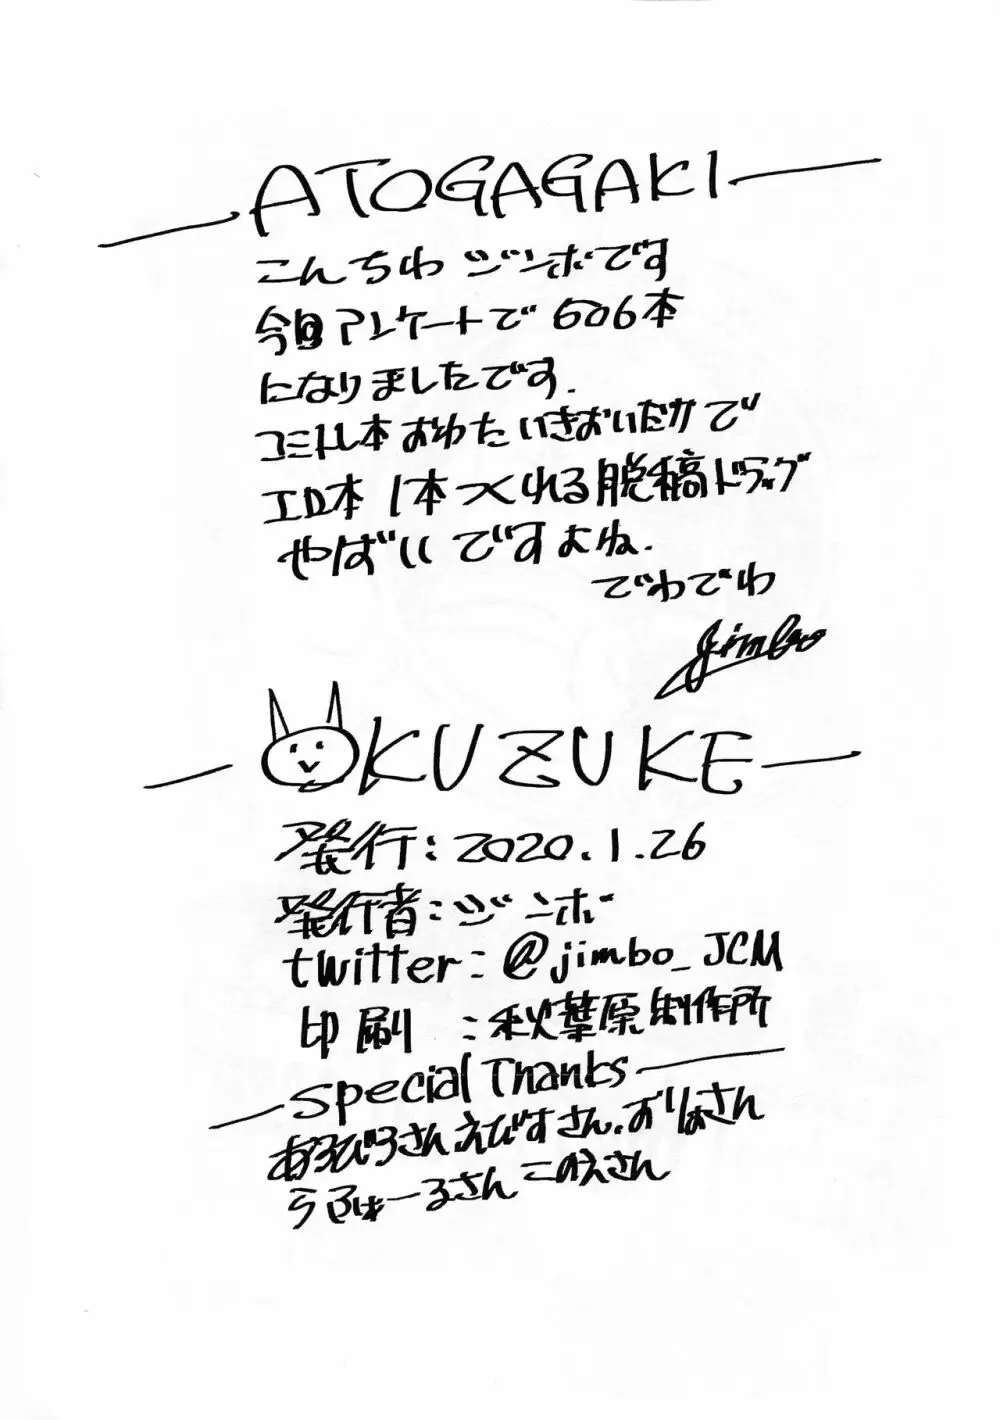 ATOGAGAKI
こんちわ ジンボです
今回アンケートで606本
になりましたです.
コミトレ本おわたいきおいだけで
エロ本1本つくれる脱稿ドラッグ
やばいですよね.
でわでわ
jimbo
OKUZUKE
発行:2020.1.26
発行者:ジンボ
twitter:@jimbo_JCM
印刷:秋葉原制作所
Special Thanks
あるびろさん えびすさん、おりはさん
らふぁーるさん このえさん